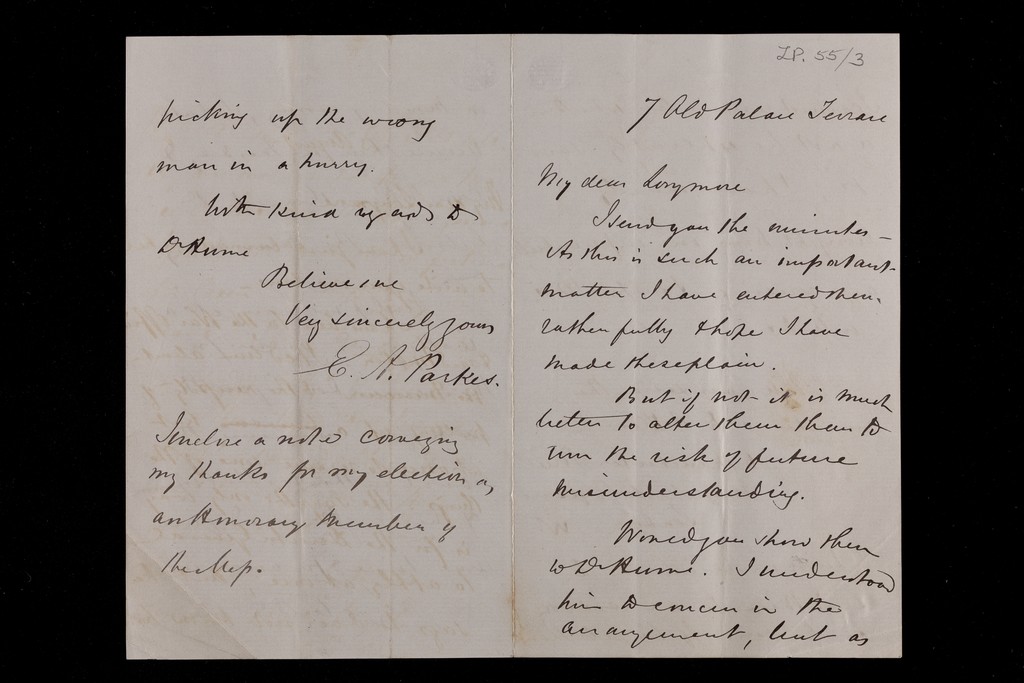 LP. 55/3
7 Old Palace Terrace
My dear Longmore
I send you the minutes –
As this is such an important
matter I have entered them
rather fully & hope I have
made these plain.
But if not it is much
better to alter them than to
run the risk of future
misunderstanding.
Would you show them
to Dr Hume. I understood
him to concur in the
arrangement, but as
picking up the wrong
man in a hurry.
With kind regards to
Dr Hume
Believe me
Very sincerely yours
E. A. Parkes.
I enclose a note conveying
my thanks for my election as
an Honorary Member of
the Mess.